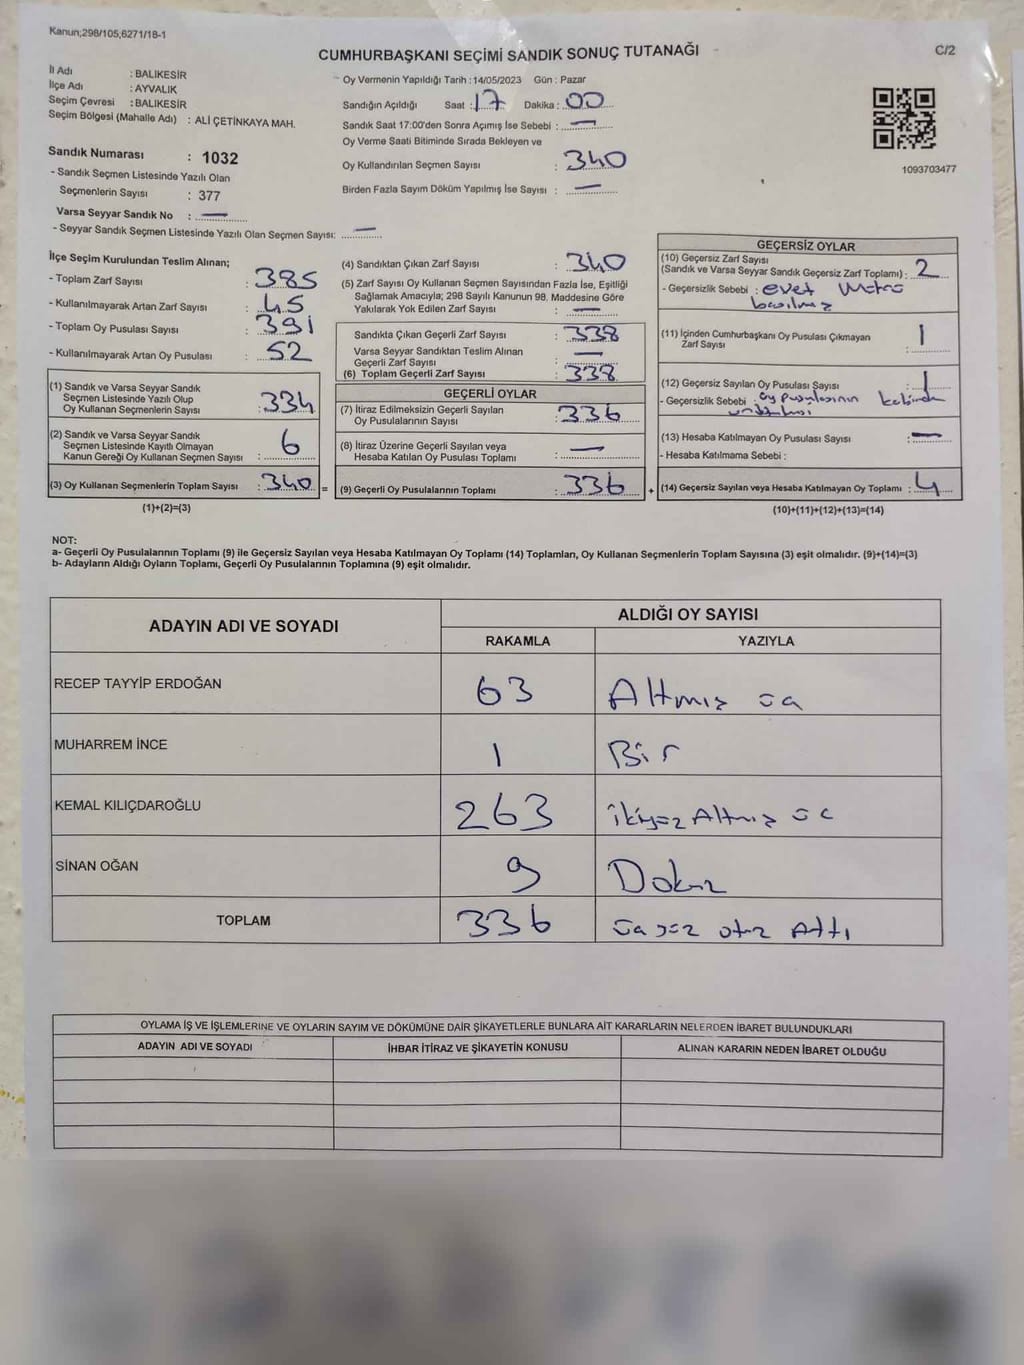 Kanun;298/105,6271/18-1
CUMHURBAŞKANI SEÇİMİ SANDIK SONUÇ TUTANAĞI
C/2
İl Adı : BALIKESİR
İlçe Adı : AYVALIK
Seçim Çevresi : BALIKESİR
Seçim Bölgesi (Mahalle Adı) : ALİ ÇETİNKAYA MAH.
Sandık Numarası : 1032
- Sandık Seçmen Listesinde Yazılı Olan
Seçmenlerin Sayısı : 377
Varsa Seyyar Sandık No : —
- Seyyar Sandık Seçmen Listesinde Yazılı Olan Seçmen Sayısı: —
Oy Vermenin Yapıldığı Tarih : 14/05/2023 Gün : Pazar
Sandığın Açıldığı Saat : 17 Dakika : 00
Sandık Saat 17:00'den Sonra Açımış İse Sebebi : —
Oy Verme Saati Bitiminde Sırada Bekleyen ve
Oy Kullandırılan Seçmen Sayısı : 340
Birden Fazla Sayım Döküm Yapılmış İse Sayısı : —
1093703477
İlçe Seçim Kurulundan Teslim Alınan;
- Toplam Zarf Sayısı : 385
- Kullanılmayarak Artan Zarf Sayısı : 45
- Toplam Oy Pusulası Sayısı : 391
- Kullanılmayarak Artan Oy Pusulası : 52
(1) Sandık ve Varsa Seyyar Sandık
Seçmen Listesinde Yazılı Olup
Oy Kullanan Seçmenlerin Sayısı : 334
(2) Sandık ve Varsa Seyyar Sandık
Seçmen Listesinde Kayıtlı Olmayan
Kanun Gereği Oy Kullanan Seçmen Sayısı : 6
(3) Oy Kullanan Seçmenlerin Toplam Sayısı : 340 =
(1)+(2)=(3)
(4) Sandıktan Çıkan Zarf Sayısı : 340
(5) Zarf Sayısı Oy Kullanan Seçmen Sayısından Fazla İse, Eşitliği
Sağlamak Amacıyla; 298 Sayılı Kanunun 98. Maddesine Göre
Yakılarak Yok Edilen Zarf Sayısı : —
Sandıkta Çıkan Geçerli Zarf Sayısı : 338
Varsa Seyyar Sandıktan Teslim Alınan
Geçerli Zarf Sayısı : —
(6) Toplam Geçerli Zarf Sayısı : 338
GEÇERLİ OYLAR
(7) İtiraz Edilmeksizin Geçerli Sayılan
Oy Pusulalarının Sayısı : 336
(8) İtiraz Üzerine Geçerli Sayılan veya
Hesaba Katılan Oy Pusulası Toplamı : —
(9) Geçerli Oy Pusulalarının Toplamı : 336 +
GEÇERSİZ OYLAR
(10) Geçersiz Zarf Sayısı
(Sandık ve Varsa Seyyar Sandık Geçersiz Zarf Toplamı) : 2
- Geçersizlik Sebebi : evet
(11) İçinden Cumhurbaşkanı Oy Pusulası Çıkmayan
Zarf Sayısı : 1
(12) Geçersiz Sayılan Oy Pusulası Sayısı : 1
- Geçersizlik Sebebi : oy pusulasının
(13) Hesaba Katılmayan Oy Pusulası Sayısı : —
- Hesaba Katılmama Sebebi :
(14) Geçersiz Sayılan veya Hesaba Katılmayan Oy Toplamı : 4
(10)+(11)+(12)+(13)=(14)
NOT:
a- Geçerli Oy Pusulalarının Toplamı (9) ile Geçersiz Sayılan veya Hesaba Katılmayan Oy Toplamı (14) Toplamları, Oy Kullanan Seçmenlerin Toplam Sayısına (3) eşit olmalıdır. (9)+(14)=(3)
b- Adayların Aldığı Oyların Toplamı, Geçerli Oy Pusulalarının Toplamına (9) eşit olmalıdır.
ADAYIN ADI VE SOYADI
ALDIĞI OY SAYISI
RAKAMLA YAZIYLA
RECEP TAYYİP ERDOĞAN 63 Altmış üç
MUHARREM İNCE 1 Bir
KEMAL KILIÇDAROĞLU 263 ikiyüz Altmış üç
SİNAN OĞAN 9 Dokuz
TOPLAM 336 üçyüz otuz Altı
OYLAMA İŞ VE İŞLEMLERİNE VE OYLARIN SAYIM VE DÖKÜMÜNE DAİR ŞİKAYETLERLE BUNLARA AİT KARARLARIN NELERDEN İBARET BULUNDUKLARI
ADAYIN ADI VE SOYADI İHBAR İTİRAZ VE ŞİKAYETİN KONUSU ALINAN KARARIN NEDEN İBARET OLDUĞU